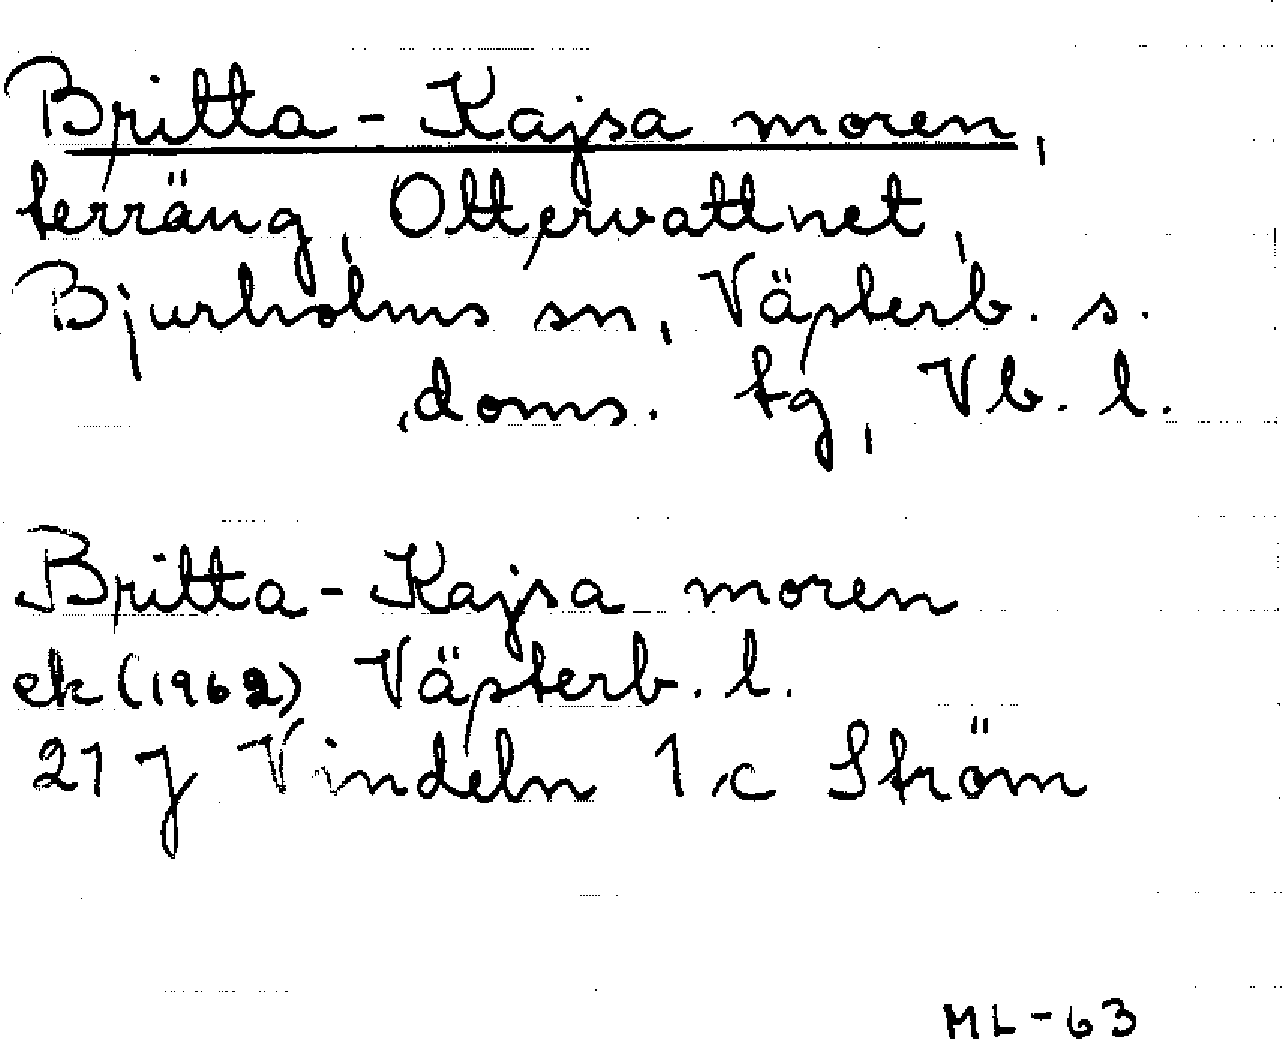 Britta-Kajsa moren,
terräng, Ottervattnet,
Bjurholms sn, Västerb. s.
doms. tg, Vb. l.
Britta-Kajsa moren
ek (1962) Västerb. l.
21 J Vindeln 1 c Ström
ML-63